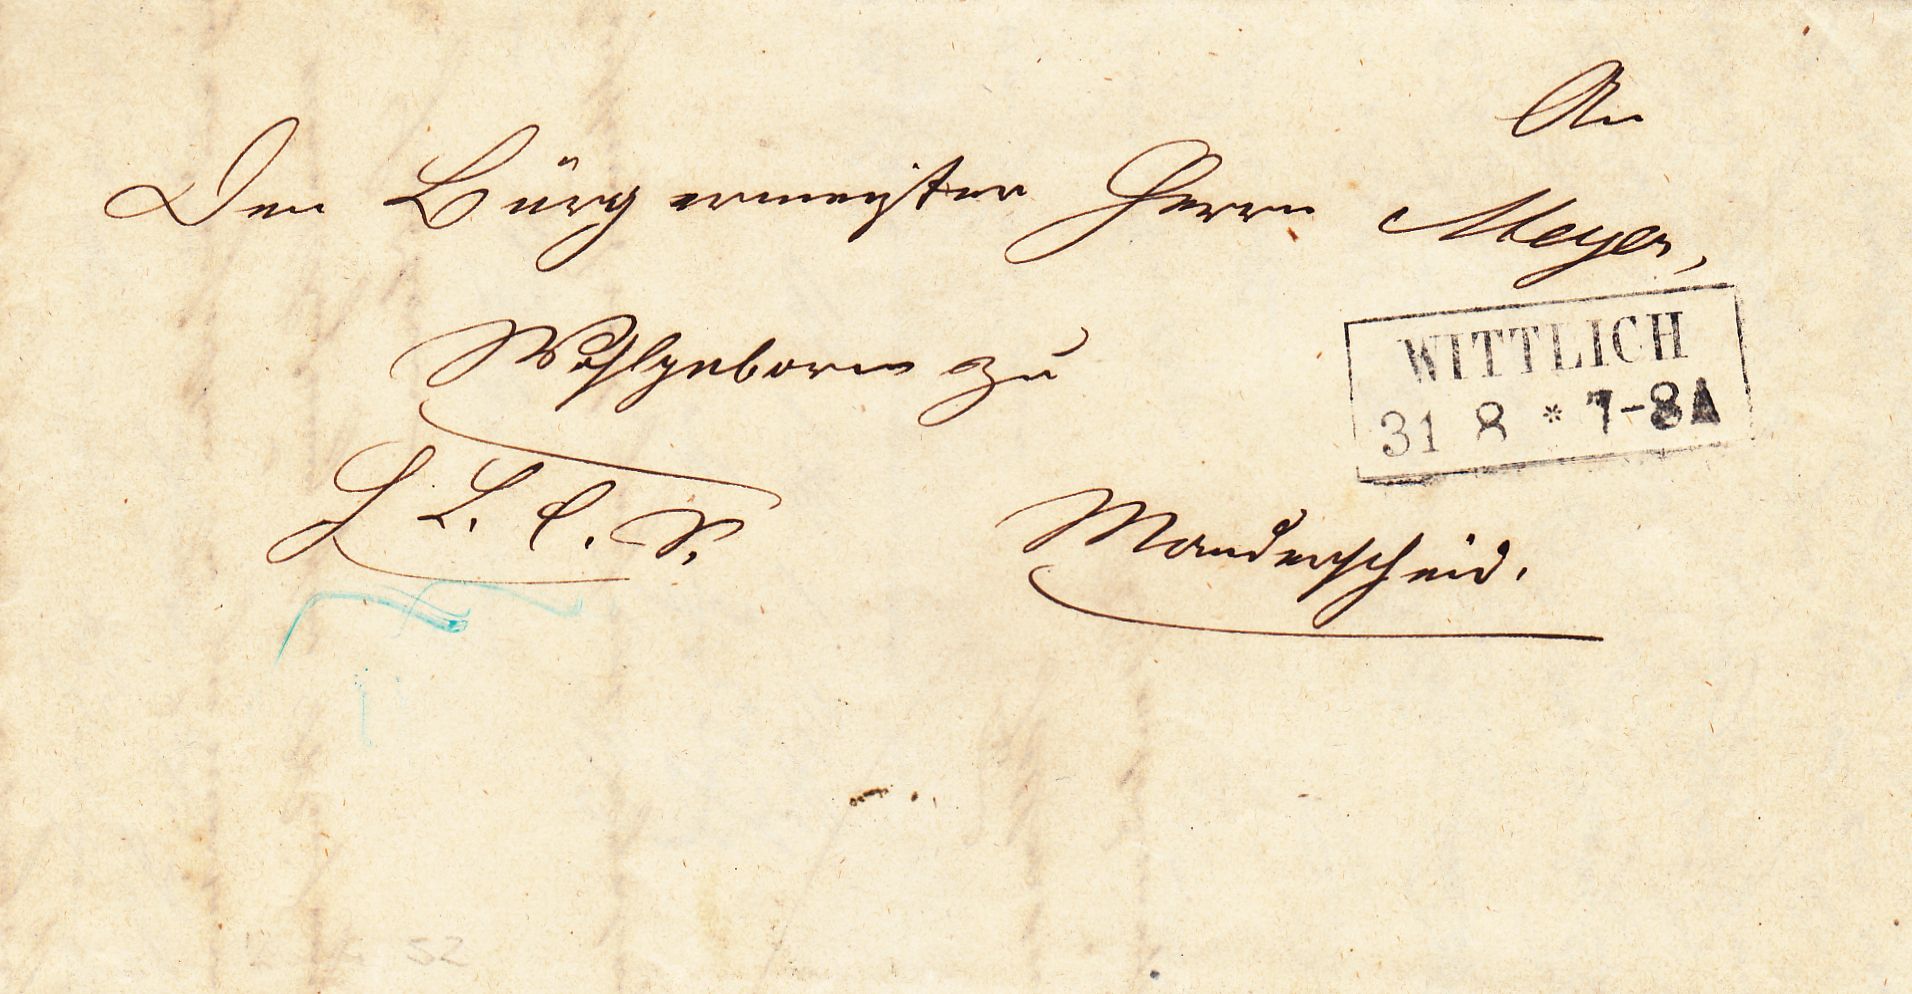 An
Den Bürgermeister Herrn Meyer,
Wohlgeboren zu
WITTLICH
31 8 * 7-8A
Manderscheid.
52